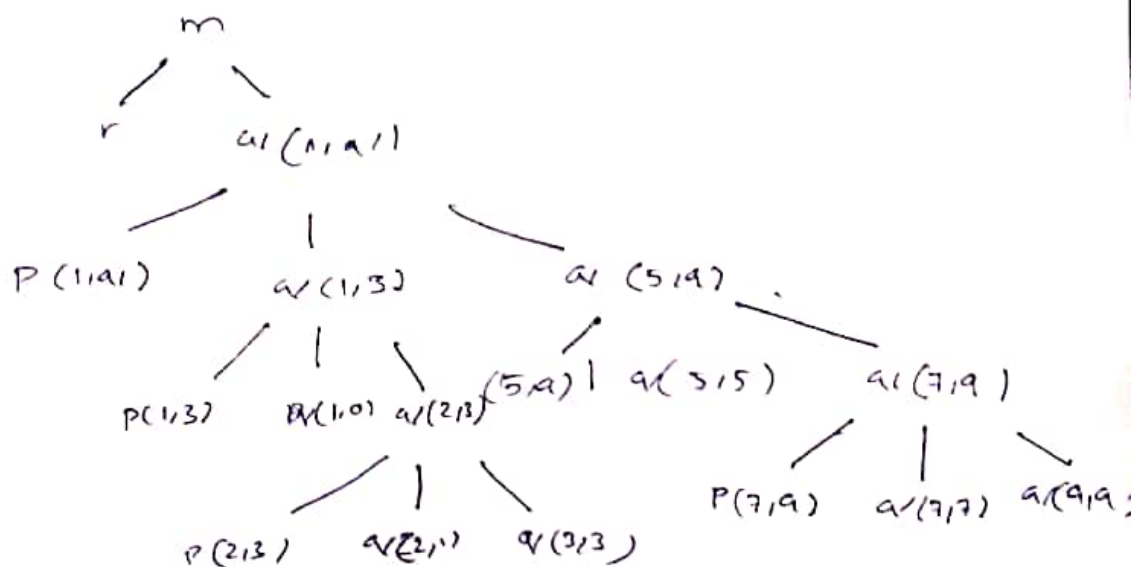 m
r
q(1,9)
p(1,9) q(1,3) q(5,9)
p(1,3) q(1,0) q(2,3) (5,9) q(5,5) q(7,9)
p(2,3) q(2,1) q(3,3) p(7,9) q(7,7) q(9,9)